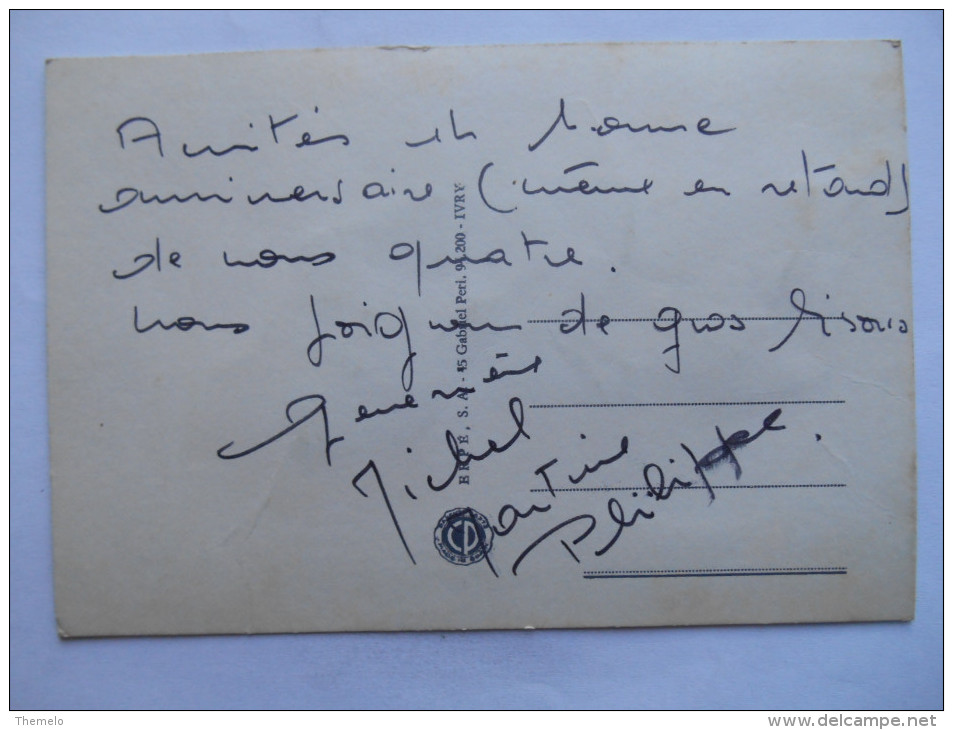 Amitiés et bonne
anniversaire (même en retard)
de nous quatre.
nous joignons de gros bisous
Geneviève
Michel
Martine
Philippe.
ERPÉ, S. A. - 45 Gabriel Peri. 94.200 - IVRY
CP
Themelo
www.delcampe.net